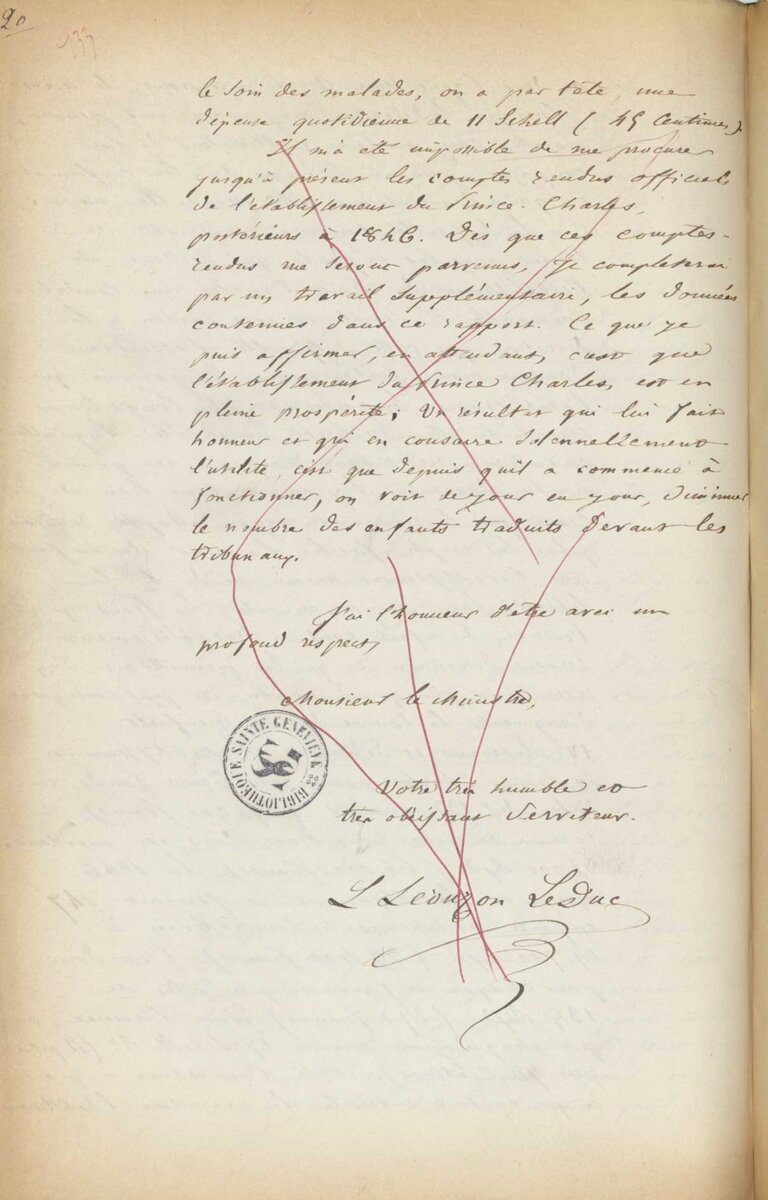 20
133
le soin des malades, on a par tête, une
dépense quotidienne de 11 Schell ( 45 Centimes ).
Il m'a été impossible de me procurer
jusqu'à présent les comptes rendus officiels
de l'établissement du Prince. Charles,
postérieurs à 1846. Dès que ces comptes-
rendus me seront parvenus, Je completerai
par un travail supplémentaire, les données
contenues dans ce rapport. Ce que je
puis affirmer, en attendant, c'est que
l'établissement du Prince Charles, est en
pleine prospérité; Un résultat qui lui fait
honneur et qui en consacre solennellement
l'utilité, c'est que depuis qu'il a commencé à
fonctionner, on voit de jour en jour, diminuer
le nombre des enfants traduits devant les
tribunaux.
J'ai l'honneur d'être avec un
profond respect,
Monsieur le Ministre,
Votre très humble et
très obéissant Serviteur.
L Léouzon LeDuc
BIBLIOTHÈQUE SAINTE GENEVIEVE
SG